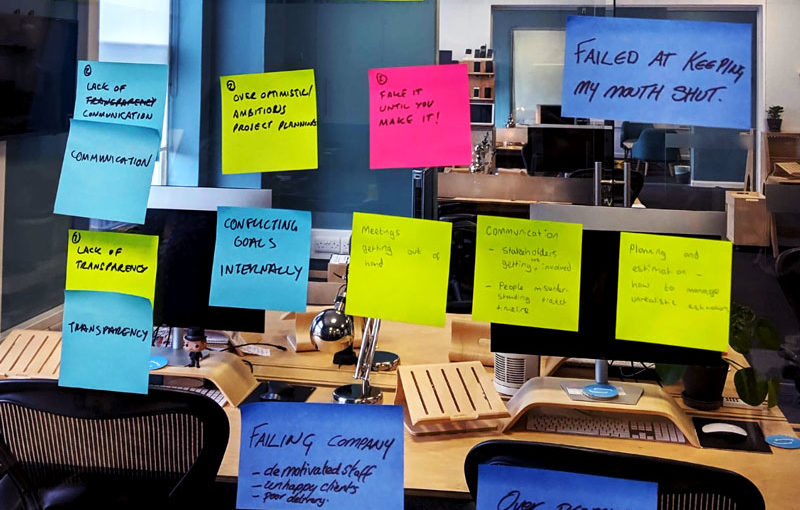 ②
LACK OF
TRANSPARENCY
COMMUNICATION
COMMUNICATION
②
OVER OPTIMISTIC/
AMBITIOUS
PROJECT PLANNING
FAKE IT
UNTIL YOU
MAKE IT!
FAILED AT KEEPING
MY MOUTH SHUT.
①
LACK OF
TRANSPARENCY
TRANSPARENCY
CONFLICTING
GOALS
INTERNALLY
Meetings
getting out of
hand
Communication
- Stakeholders
getting involved
- People misunder-
standing project
timeline
Planning and
estimation -
how to manage
unrealistic
FAILING COMPANY
- demotivated staff
- unhappy clients
- poor delivery.
Over